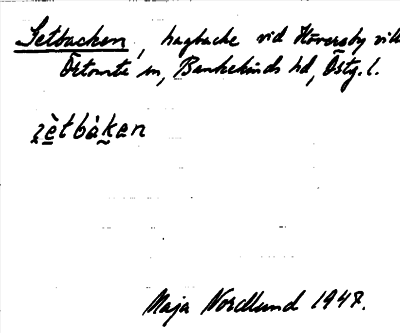 Getbacken, hagbacke vid Höversby vill
Örtomta sn, Bankekinds hd, Östg. l.
ȷètbàkan
Maja Nordlund 1947.